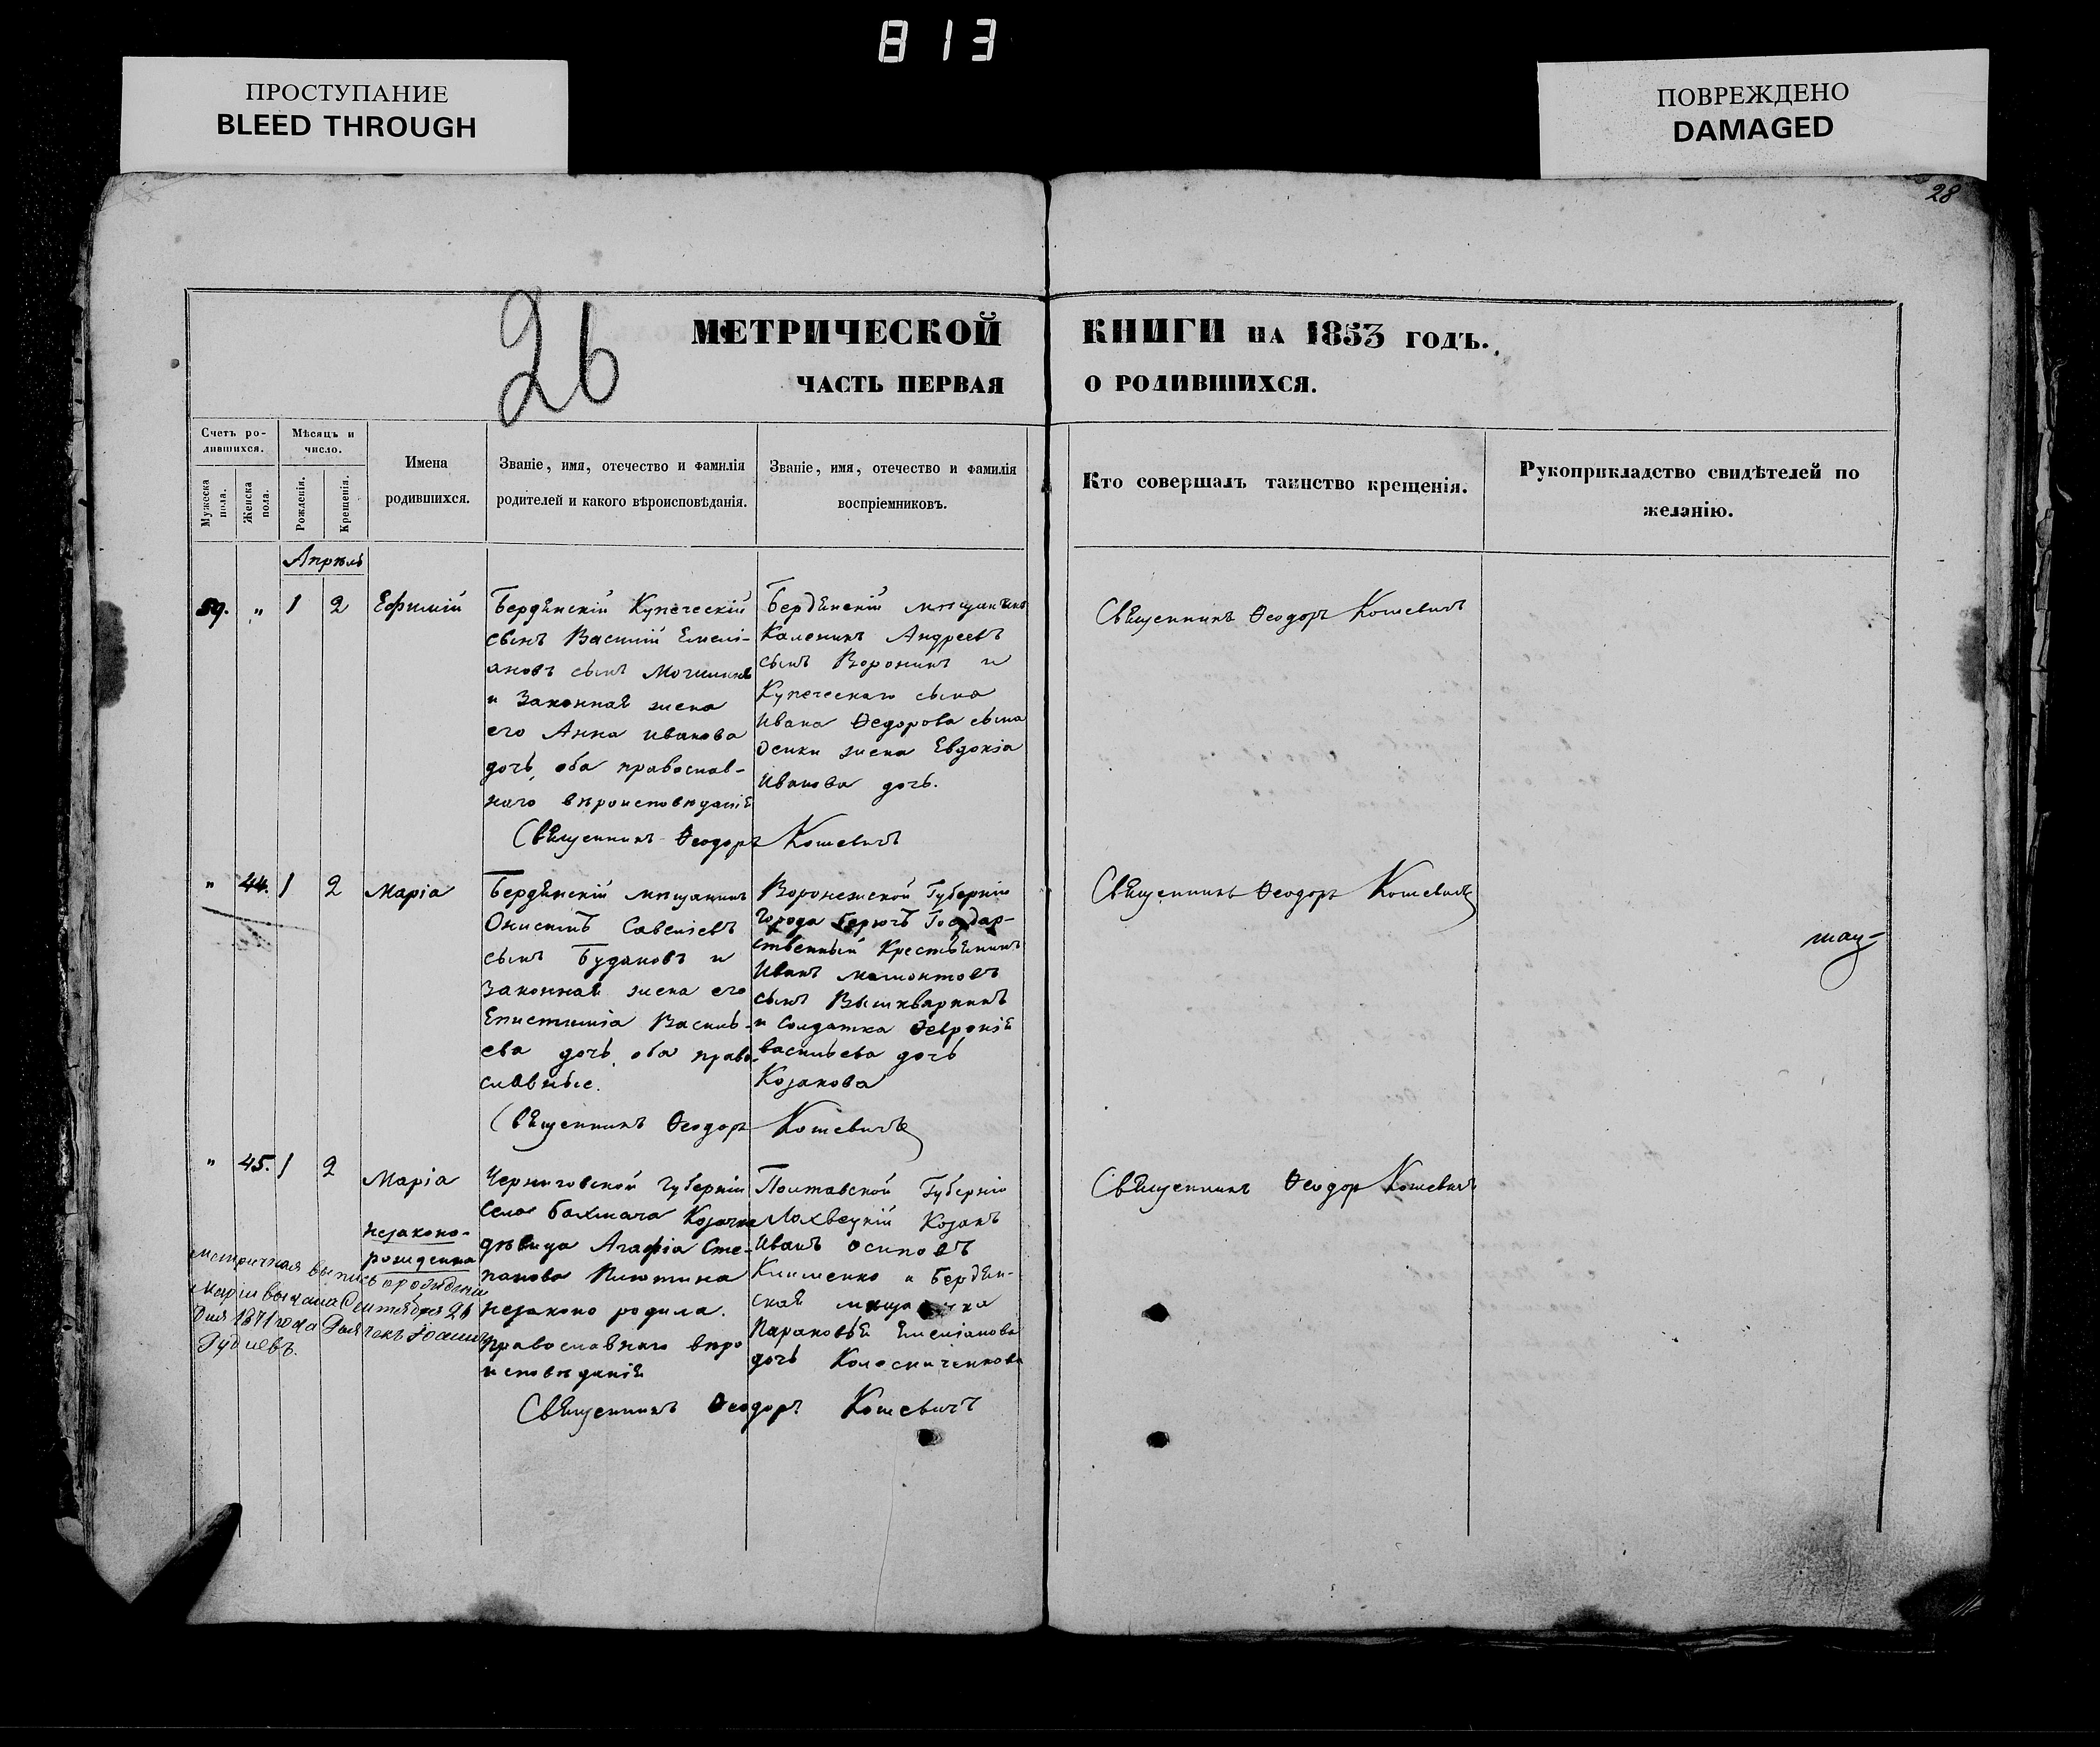 813
ПРОСТУПАНИЕ
BLEED THROUGH
ПОВРЕЖДЕНО
DAMAGED
28
26
МЕТРИЧЕСКОЙ КНИГИ НА 1853 ГОДЪ.
ЧАСТЬ ПЕРВАЯ О РОДИВШИХСЯ.
Счетъ ро-
дившихся.
Мужеска
пола.
Женска
пола.
Мѣсяцъ и
число.
Рожденія.
Крещенія.
Имена
родившихся.
Званіе, имя, отечество и фамилія
родителей и какого вѣроисповѣданія.
Званіе, имя, отечество и фамилія
воспріемниковъ.
Кто совершалъ таинство крещенія.
Рукоприкладство свидѣтелей по
желанію.
Апрѣль
59. " 1 2 Ефимій
Бердянскій Купеческій
сынъ Василій Емелі-
ановъ сынъ
и Законная жена
его Анна Иванова
дочь, оба православ-
наго вѣроисповѣданія
Бердянскій мѣщанинъ
Каленикъ Андреевъ
сынъ Воронинъ и
Купеческаго сына
Ивана Ѳедорова сына
Осики жена Евдокія
Иванова дочь.
Священникъ Ѳеодоръ Кошевичъ
Священникъ Ѳеодоръ Кошевичъ
" 44. 1 2 Марія
Бердянскій мѣщанинъ
Онисимъ Савеліевъ
сынъ Будаковъ и
Законная жена его
Епистимія Василь-
ева дочь, оба право-
славные.
Воронежской Губерніи
Города Бирючъ Государ-
ственный Крестьянинъ
Иванъ Мамонтовъ
сынъ Вышкваркинъ
и Солдатка Ѳевронія
Васильева дочь
Козакова
Священникъ Ѳеодоръ Кошевичъ
Священникъ Ѳеодоръ Кошевичъ
" 45. 1 2 Марія
незаконо-
рожденна
Черниговской Губерніи
Села Бахмача Козачка
дѣвица Агафія Сте-
панова
незаконо родила.
Православнаго вѣро
исповѣданія
Полтавской Губерніи
Лохвецкій Козакъ
Иванъ Осиповъ
Клименко и Бердян-
ская
Парасковья Емеліанова
дочь Колосниченкова
Священникъ Ѳеодоръ Кошевичъ
Священникъ Ѳеодоръ Кошевичъ
Метрическая выпись о рожденіи
Маріи выдана Сентября 26
дня 1871 года